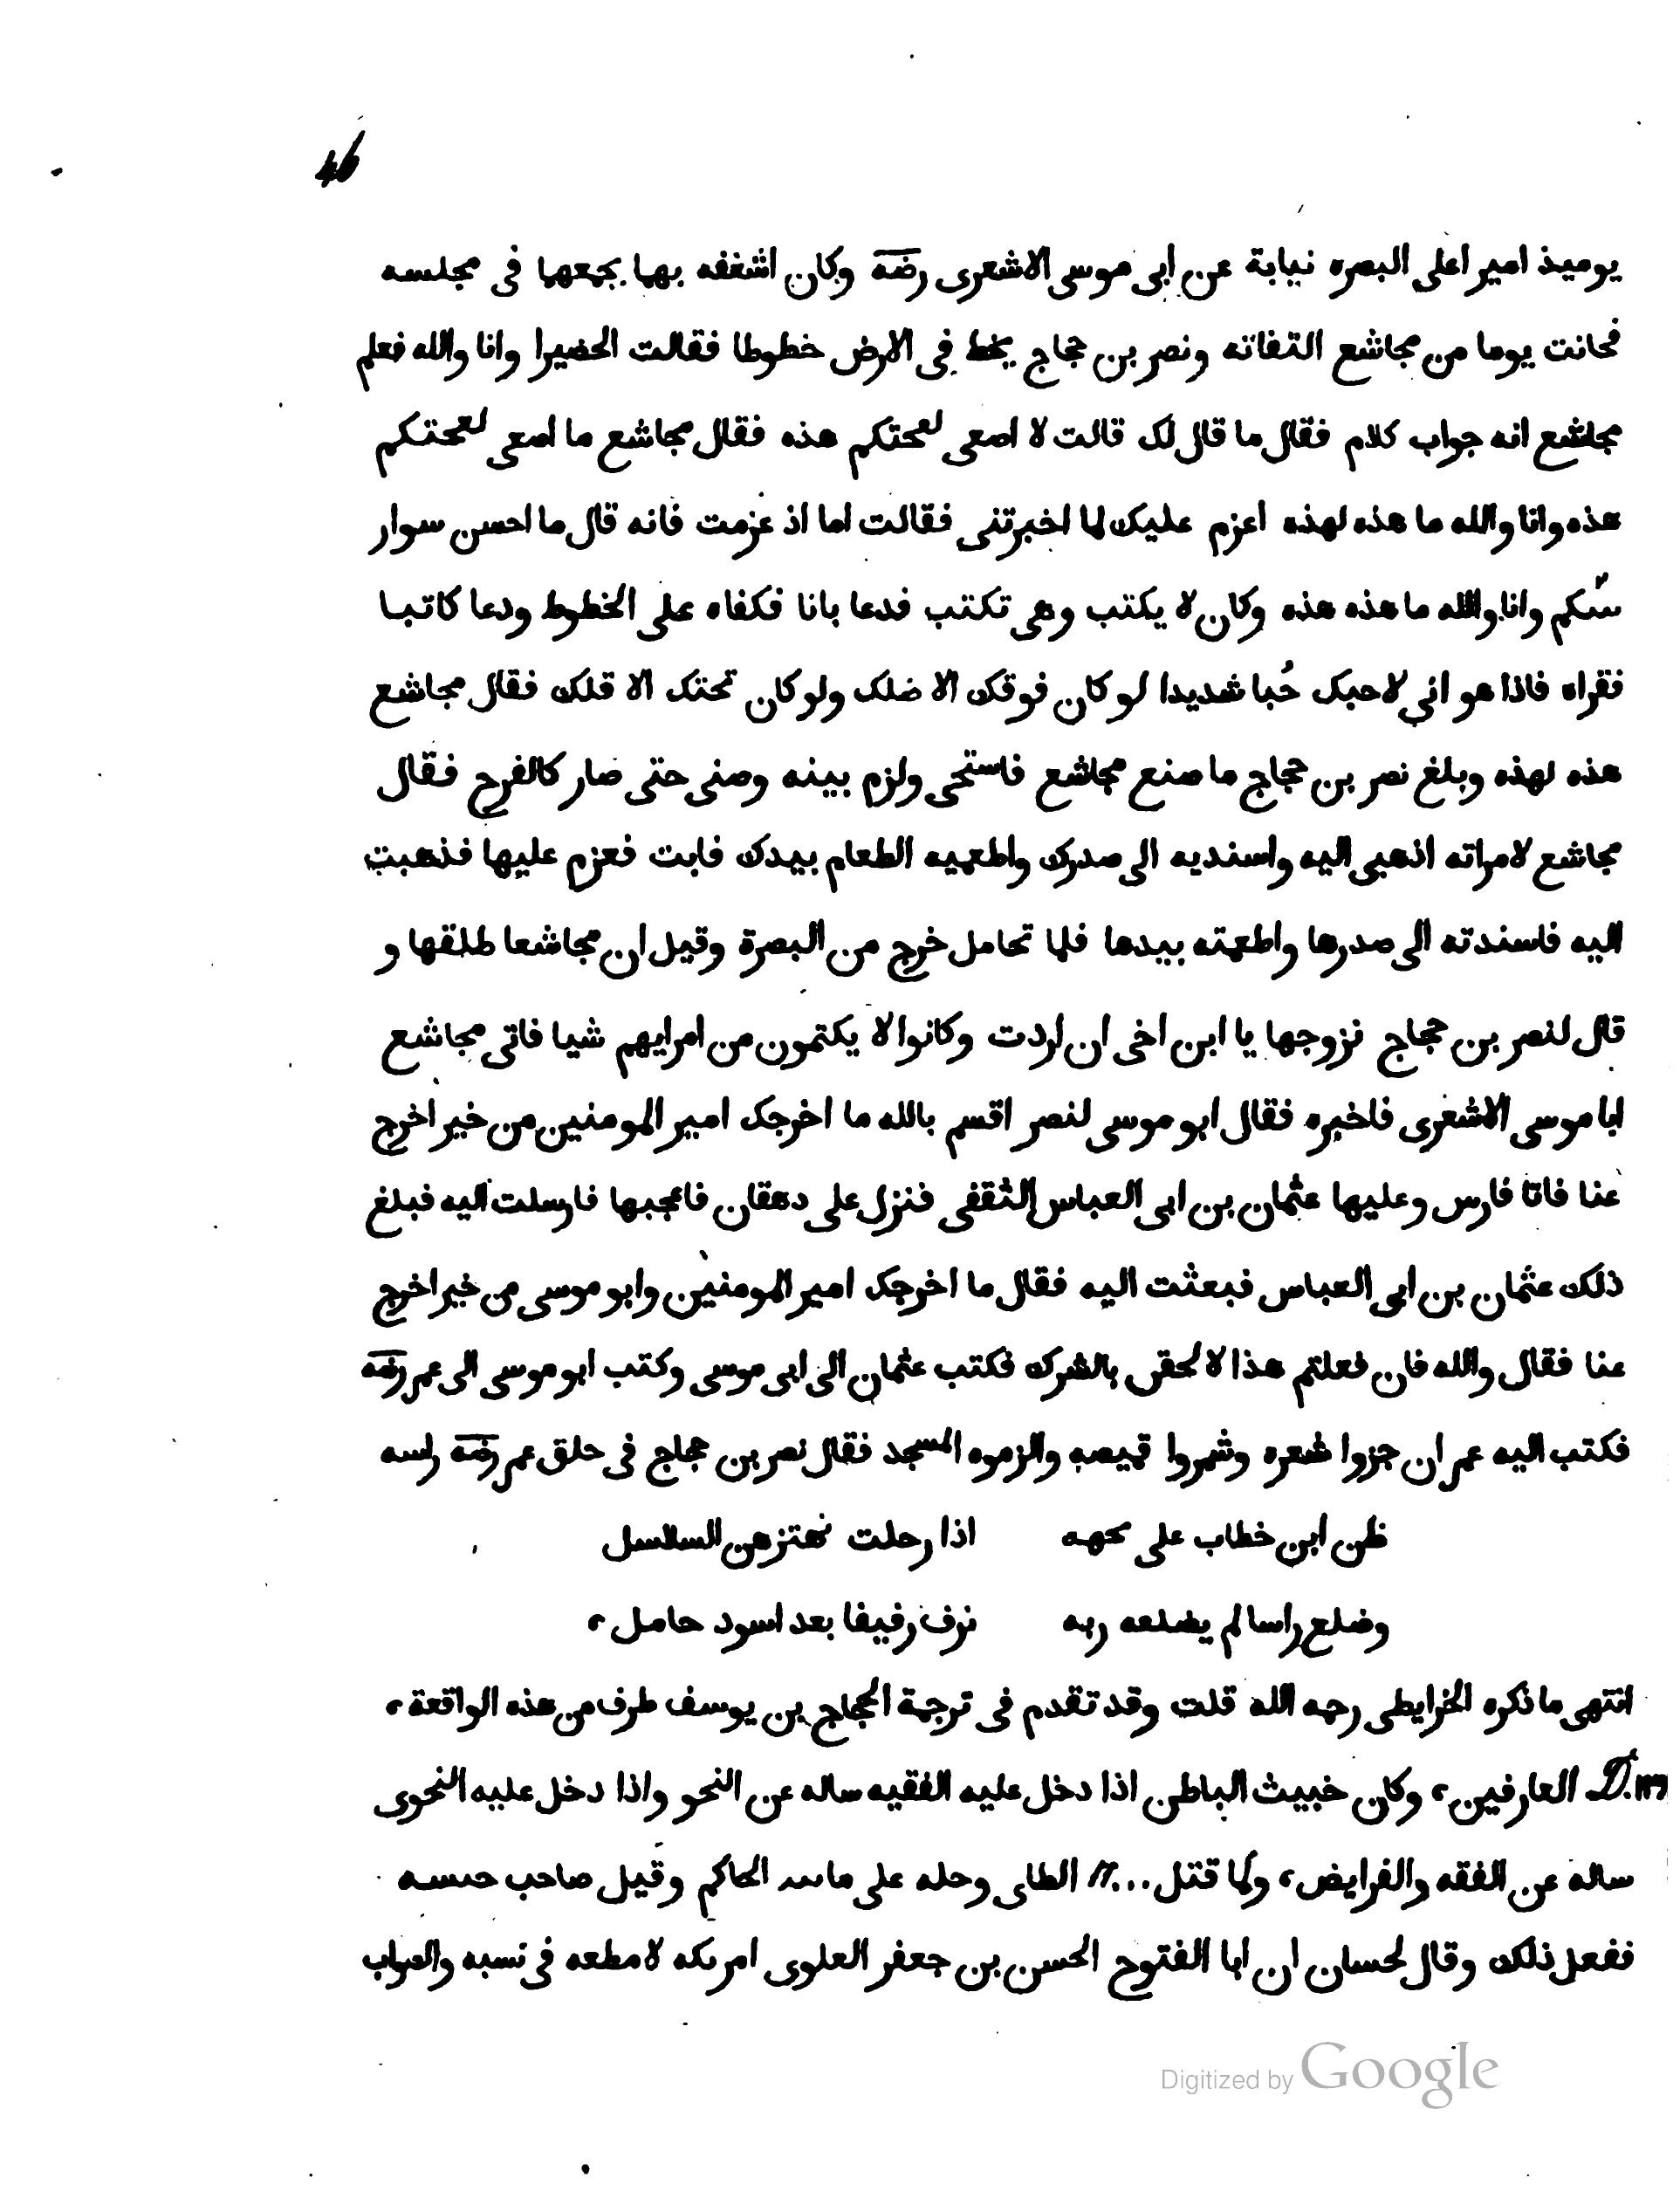 46
يوميذ اميرا على البصره نيابة عن ابى موسى الاشعرى رضه وكان اشغفه بها يجمعها فى مجلسه
فحانت يوما من مجاشع التفاته ونصر بن حجاج يخط فى الارض خطوطا فقالت الخضيرا وانا والله فعلم
مجاشع انه جواب كلام فقال ما قال لك قالت لا اصعى لعحتكم هذه فقال مجاشع ما اصعى لعحتكم
هذه وانا والله ما هذه لهذه اعزم عليك لما اخبرتنى فقالت اما اذ عزمت فانه قال ما احسن سوار
وانا والله ما هذه هذه وكان لا يكتب وهى تكتب فدعا بانا فكفاه على الخطوط ودعا كاتبا
فقراه فاذا هو انى لاحبك حُبا شديدا لو كان فوقك الا ضلك ولو كان تحتك الا قلك فقال مجاشع
هذه لهذه وبلغ نصر بن حجاج ما صنع مجاشع فاستحى ولزم بيته وصنى حتى صار كالفرح فقال
مجاشع لامراته اذهبى اليه واسنديه الى صدرك واطعميه الطعام بيدك فابت فعزم عليها فذهبت
اليه فاسندته الى صدرها واطعمته بيدها فلما تحامل خرج من البصرة وقيل ان مجاشعا طلقها و
قال لنصر بن حجاج تزوجها يا ابن اخى ان اردت وكانوا لا يكتمون من امرايهم شيا فاتى مجاشع
ابا موسى الاشعرى فاخبره فقال ابو موسى لنصر اقسم بالله ما اخرجك امير المومنين من خير اخرج
عنا فاتا فارس وعليها عثمان بن ابى العباس الثقفى فنزل على دهقان فاعجبها فارسلت اليه فبلغ
ذلك عثمان بن ابى العباس فبعثت اليه فقال ما اخرجك امير المومنين وابو موسى من خير اخرج
عنا فقال والله فان فعلتم هذا لالحقن بالشرك فكتب عثمان الى ابى موسى وكتب ابو موسى الى عمر رضه
فكتب اليه عمر ان جزوا شعره وشمروا قميصه والزموه المسجد فقال نصر بن حجاج فى حلق عمر رضه راسه
ظن ابن خطاب على اذا رحلت تهتز هن السلاسل
وضلع راسا لم يضلعه ربه نرف رفيفا بعد اسود حامل،
انتهى ما ذكره الخرايطى رحمه الله قلت وقد تقدم فى ترجمة الحجاج بن يوسف طرف من هذه الواقعة،
العارفين، وكان خبيث الباطن اذا دخل عليه الفقيه ساله عن النحو واذا دخل عليه النحوى
ساله عن الفقه والفرايض، ولما قتل ... الطاى وحله على الحاكم وقيل صاحب
ففعل ذلك وقال لحسان ان ابا الفتوح الحسن بن جعفر العلوى لا مطعه فى نسبه والصواب
Digitized by Google